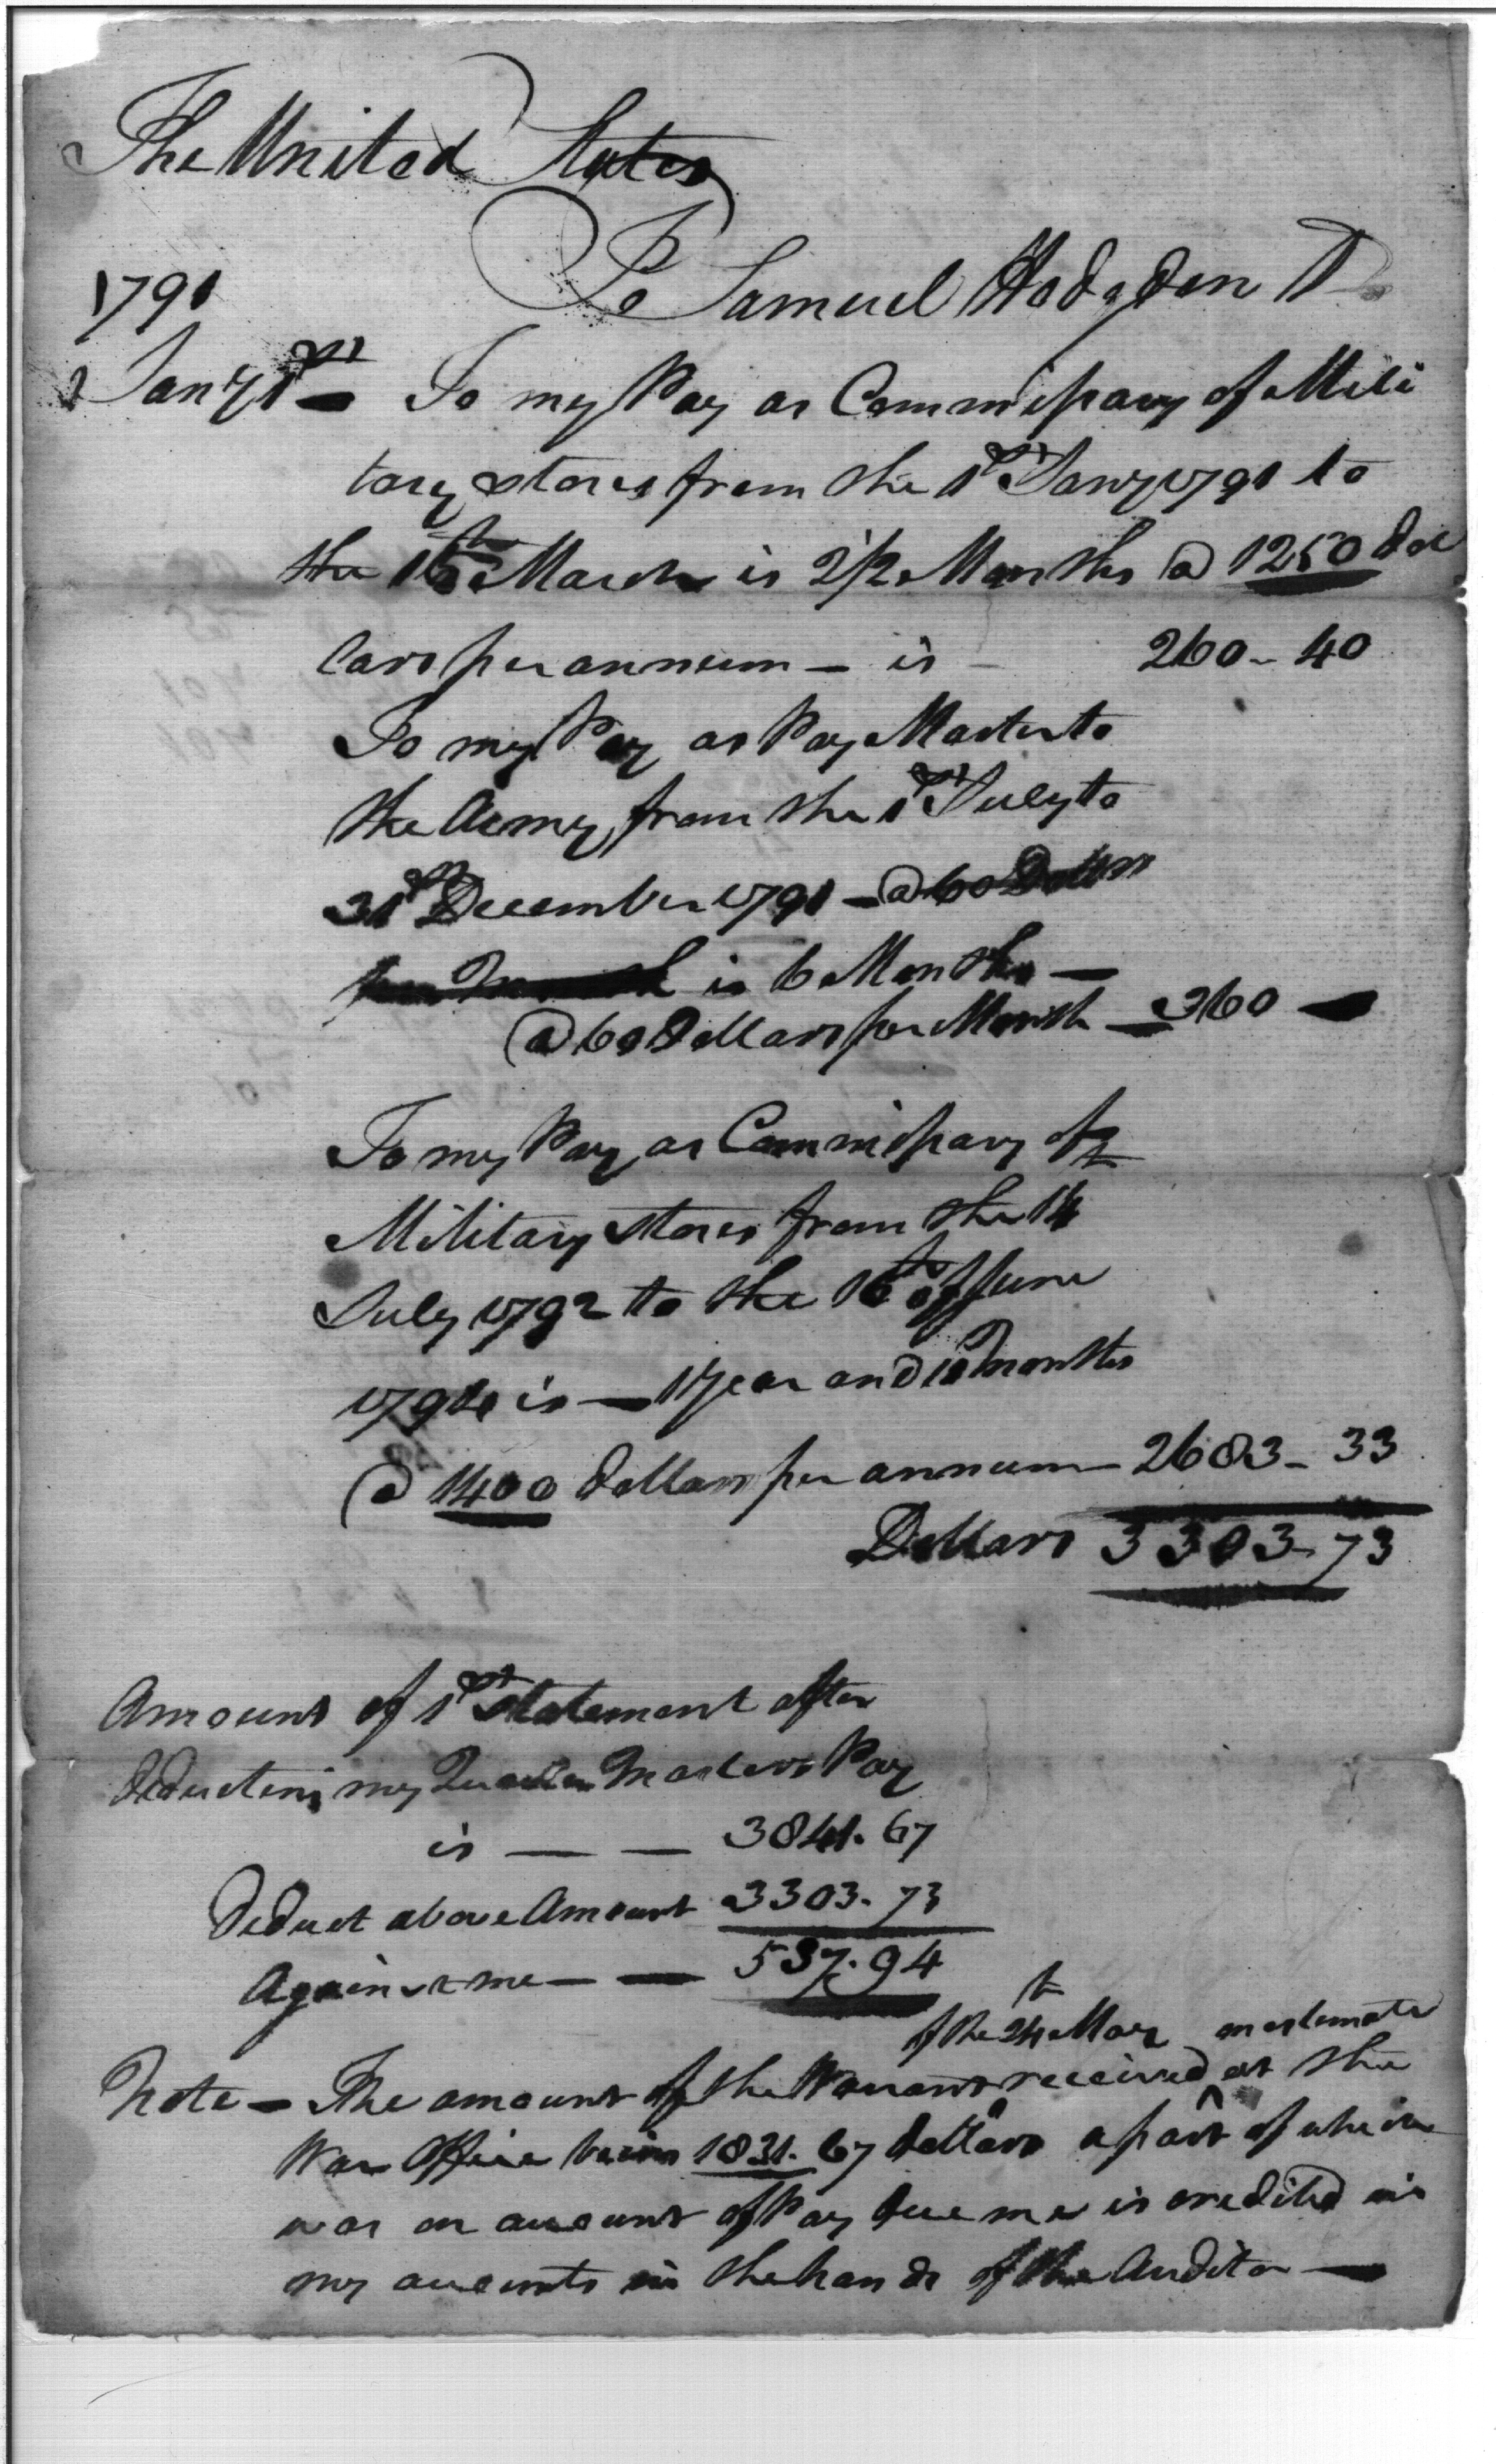 The United States
To Samuel Hodgdon Dr
1791
Jany 1st — To my Pay as Commissary of Mili
tary stores from the 1st Jany 1791 to
the 16th March is 2 1/2 Months @ 1250 dol
lars per annum — is — 260 - 40
To my Pay as Pay Master to
the Army from the 1st July to
31st December 1791 — @ 60 Dollars
per Month is 6 Months —
@ 60 Dollars per Month — 360 —
To my Pay as Commissary of
Military stores from the 14
July 1792 to the 16th of June
1794 is — 1 Year and 11 months
@ 1400 dollars per annum — 2683 - 33
Dollars 3303 - 73
Amount of 1st Statement after
deducting my Quarter Masters Pay
is — — 3841. 67
Deduct above Amount 3303. 73
Against me — — 537. 94
of the 24th May on estimate
Note — The amount of the Warrant received at the
War Office being 1831. 67 dollars a part of which
was on account of Pay due me is credited in
my accounts in the hands of the Auditor —